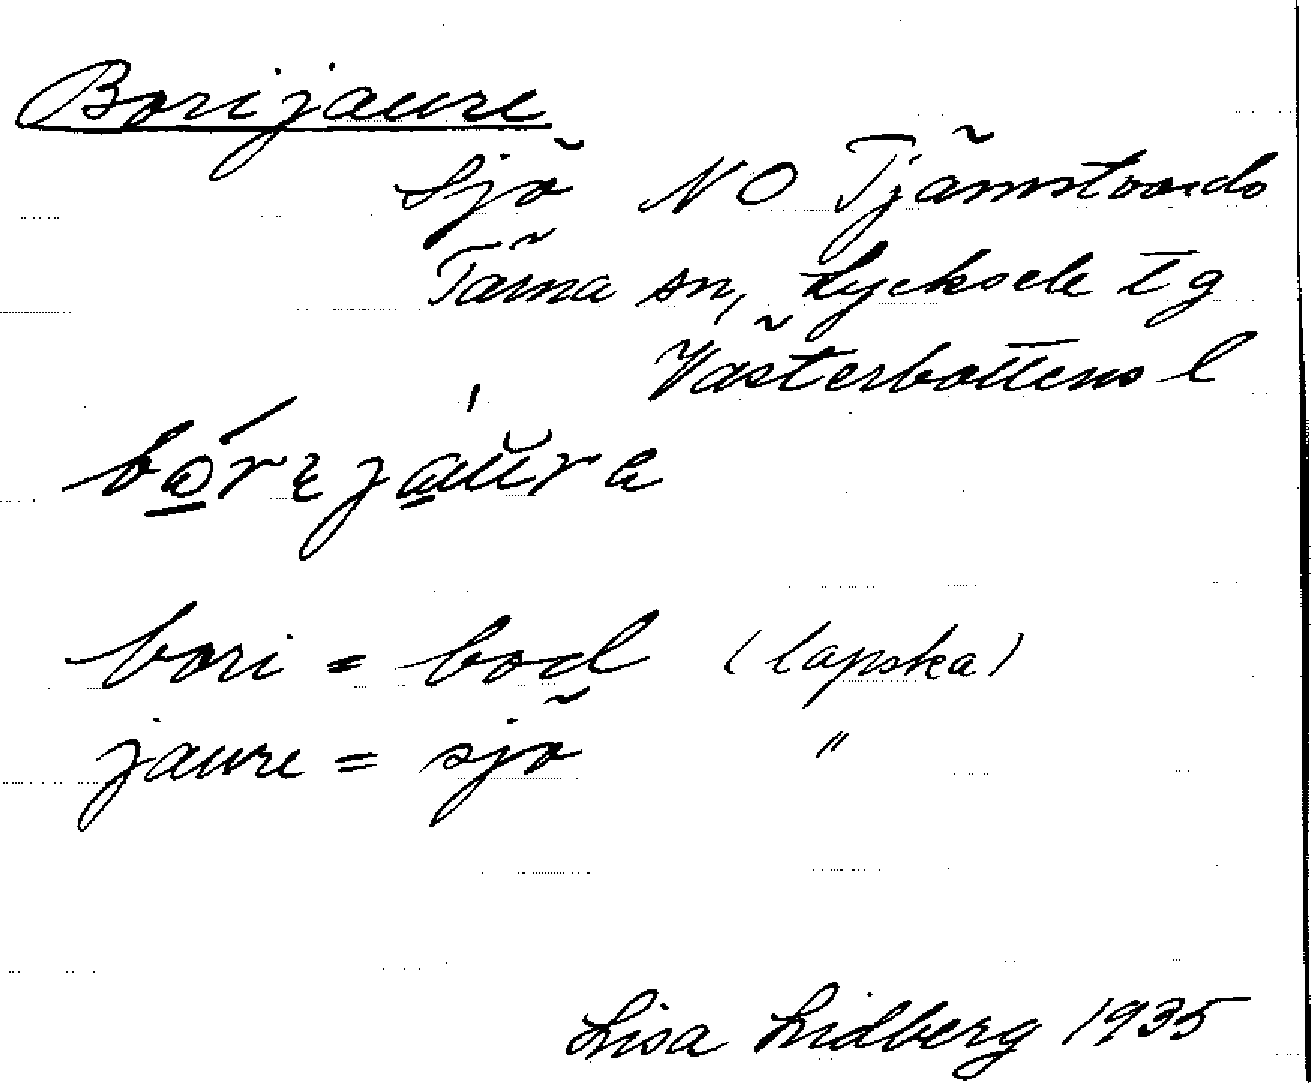 Borijaure
sjö NO Tjämstvardo
Tärna sn, Lycksele tg
Västerbottens l
bori = bod (lapska)
jaure = sjö "
Lisa Lidberg 1935